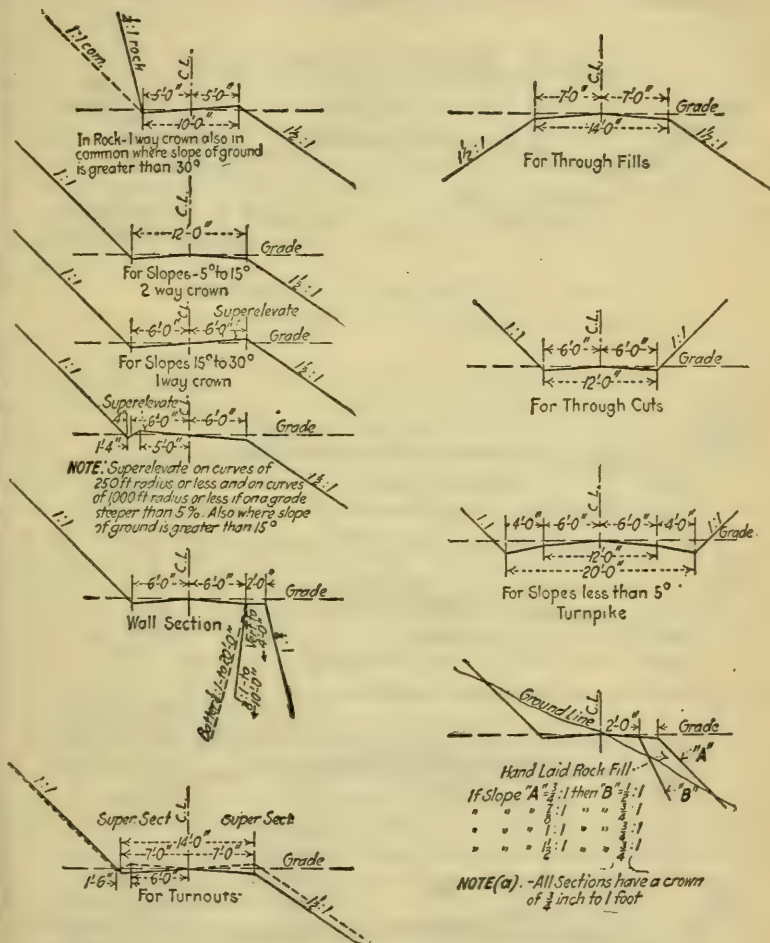 1:1 com.
1/4:1 rock
C.L.
5'-0" 5'-0"
10'-0"
1½:1
In Rock-1 way crown also in
common where slope of ground
is greater than 30°
1:1
C.L.
12'-0"
Grade
1½:1
For Slopes-5° to 15°
2 way crown
1:1
Superelevate
6'-0" 6'-0"
Grade
1½:1
For Slopes 15° to 30°
1 way crown
1:1
Superelevate
C.L.
6'-0" 6'-0"
Grade
1'-4" 5'-0"
1½:1
NOTE: Superelevate on curves of
250 ft radius or less and on curves
of 1000 ft radius or less if on a grade
steeper than 5%. Also where slope
of ground is greater than 15°
1:1
C.L.
6'-0" 6'-0" 2'-0"
Grade
Wall Section
1:1
C.L.
Super Sect Super Sect
14'-0"
7'-0" 7'-0"
Grade
1'-6" 6'-0"
1½:1
For Turnouts
C.L.
7'-0" 7'-0"
Grade
14'-0"
1½:1 1½:1
For Through Fills
C.L.
1:1 1:1
6'-0" 6'-0"
Grade
12'-0"
For Through Cuts
C.L.
1:1 1:1
4'-0" 6'-0" 6'-0" 4'-0"
Grade
12'-0"
20'-0"
For Slopes less than 5°
Turnpike
C.L.
Ground Line
2'-0"
Grade
"A"
"B"
Hand Laid Rock Fill
If Slope "A"=¾:1 then "B"=½:1
" " " :1 " " :1
" " " 1:1 " " :1
" " " 1½:1 " " :1
NOTE(a).-All Sections have a crown
of ¾ inch to 1 foot